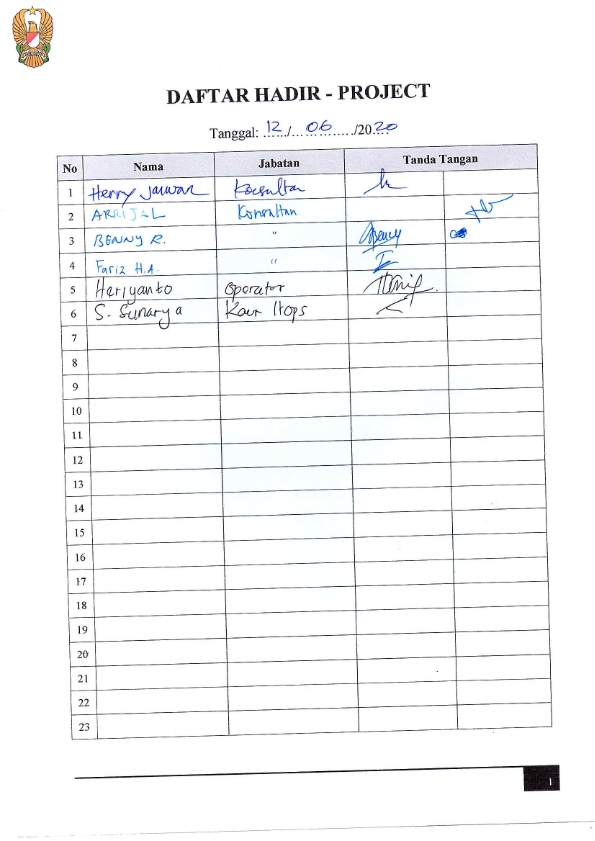 DAFTAR HADIR - PROJECT
Tanggal: 12/06/2020
No Nama Jabatan Tanda Tangan
1 Herry Konsultan
2 ARRIJAL Konsultan
3 BENNY R. "
4 Fariz H.A. "
5 Heriyanto Operator
6 S. Sunarya Kaur Itops
7
8
9
10
11
12
13
14
15
16
17
18
19
20
21
22
23
1